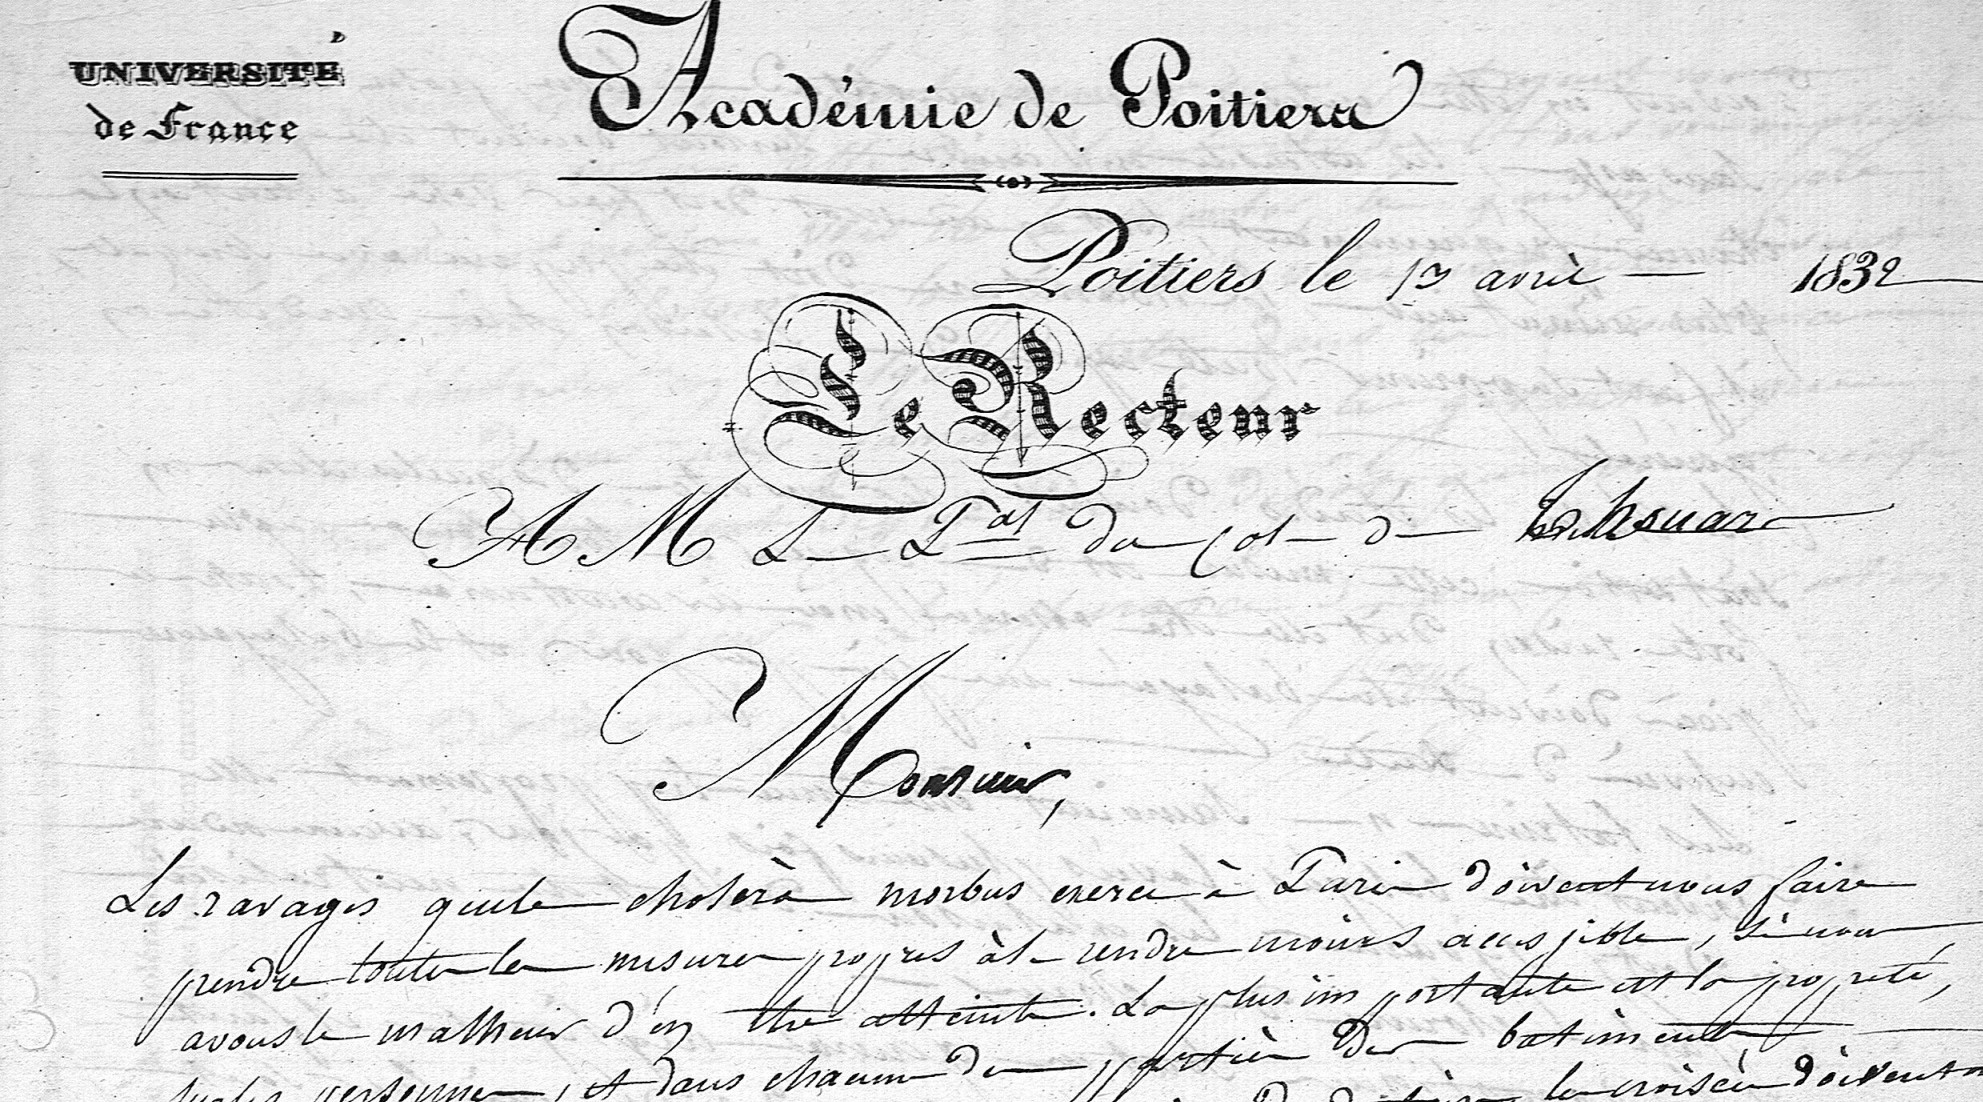 UNIVERSITÉ
de France
Académie de Poitiers
Poitiers le 17 avril 1832
Le Recteur
A M Le Pal du Col de
Monsieur,
Les ravages que le cholèra morbus exerce à Paris doivent nous faire
prendre toutes les mesures propres à le rendre moins accessible, si nous
avons le malheur d'en être atteints. La plus importante est la propreté,
sur les personnes, et dans chacune des parties des batiments
les croisées doivent